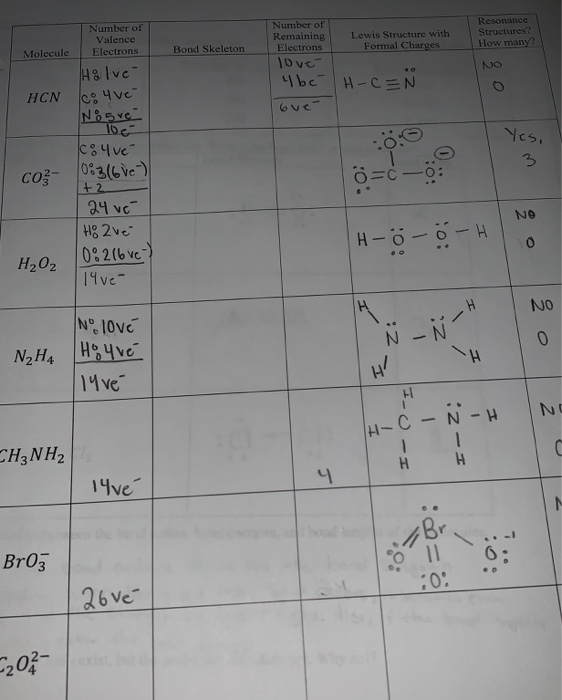 Molecule
Number of
Valence
Electrons
Bond Skeleton
Number of
Remaining
Electrons
Lewis Structure with
Formal Charges
Resonance
Structures?
How many?
HCN
H: 1ve⁻
C: 4ve⁻
N: 5ve⁻
10e⁻
10ve⁻
4be⁻
6ve⁻
H-C≡N̈
NO
0
CO₃²⁻
C: 4ve⁻
O: 3(6ve⁻)
+2
24 ve⁻
:Ö: ⊖
|
Ö=C-Ö: ⊖
Yes,
3
H₂O₂
H: 2ve⁻
O: 2(6ve⁻)
14ve⁻
H-Ö-Ö-H
NO
0
N₂H₄
N: 10ve⁻
H: 4ve⁻
14ve⁻
H H
N̈-N̈
H H
NO
0
CH₃NH₂
14ve⁻
4
H
|
H-C-N̈-H
| |
H H
BrO₃⁻
26ve⁻
B̈r
Ö || Ö: -1
:O:
C₂O₄²⁻